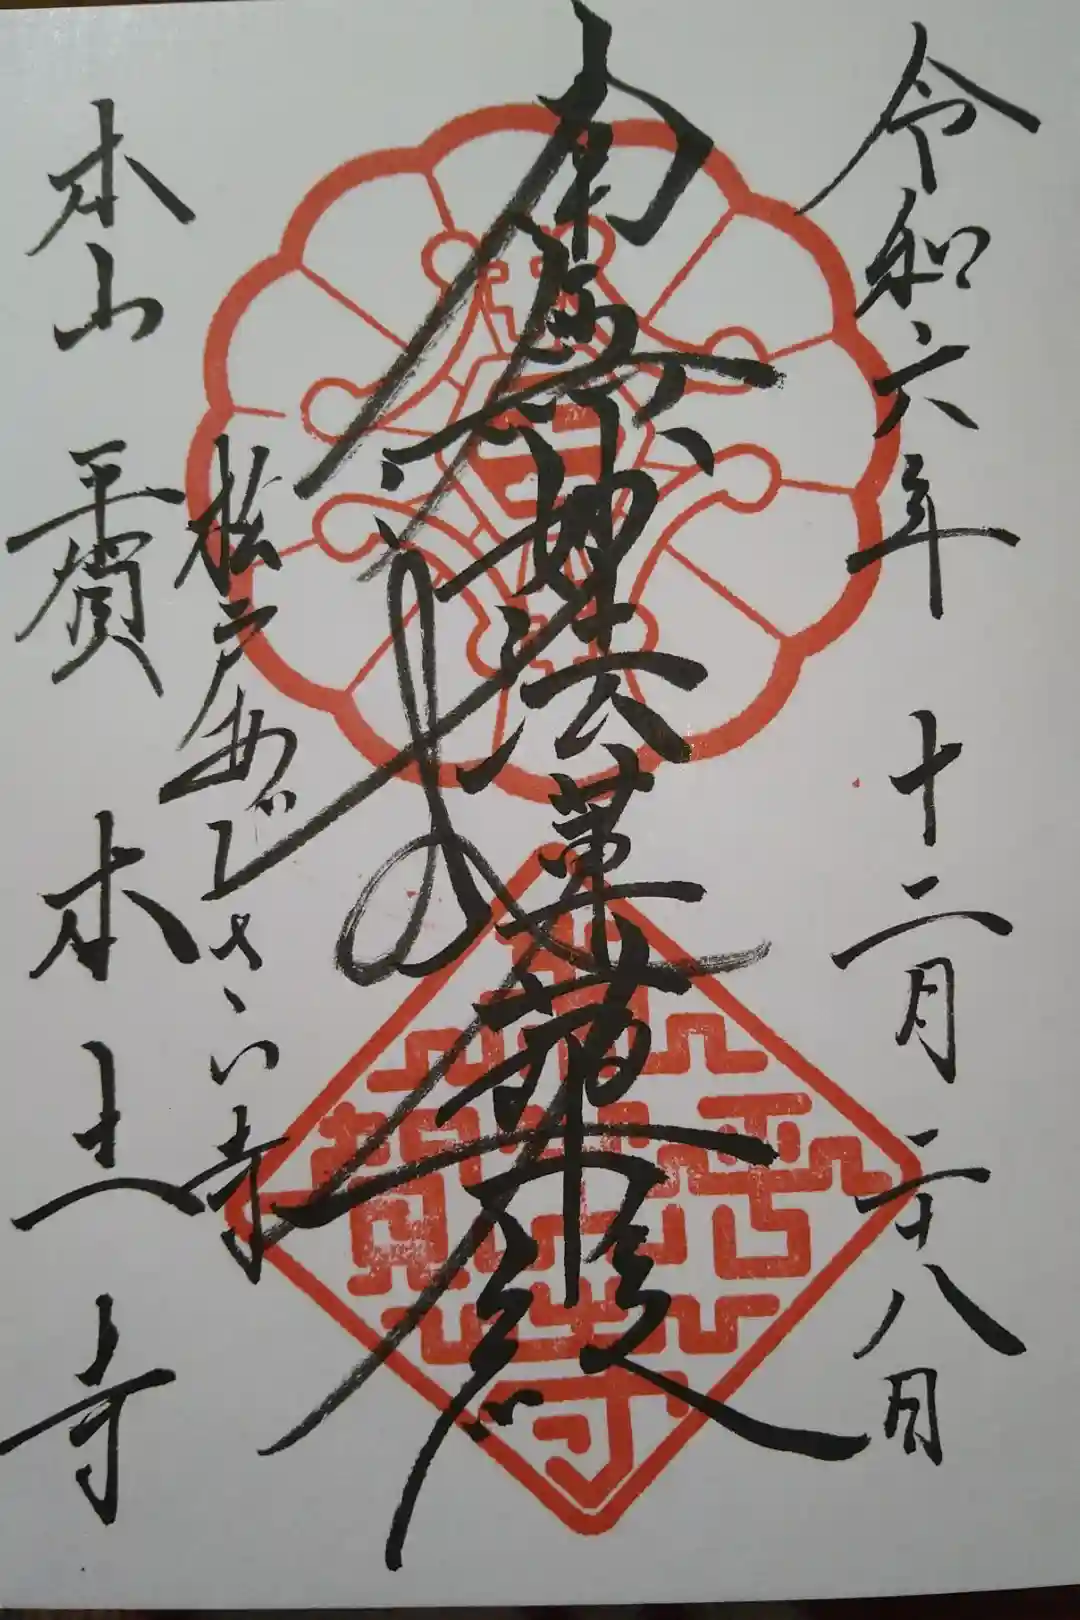 令和六年 十二月二十八日
南無妙法蓮華経
松戸あぢさい寺
本山 平賀 本土寺